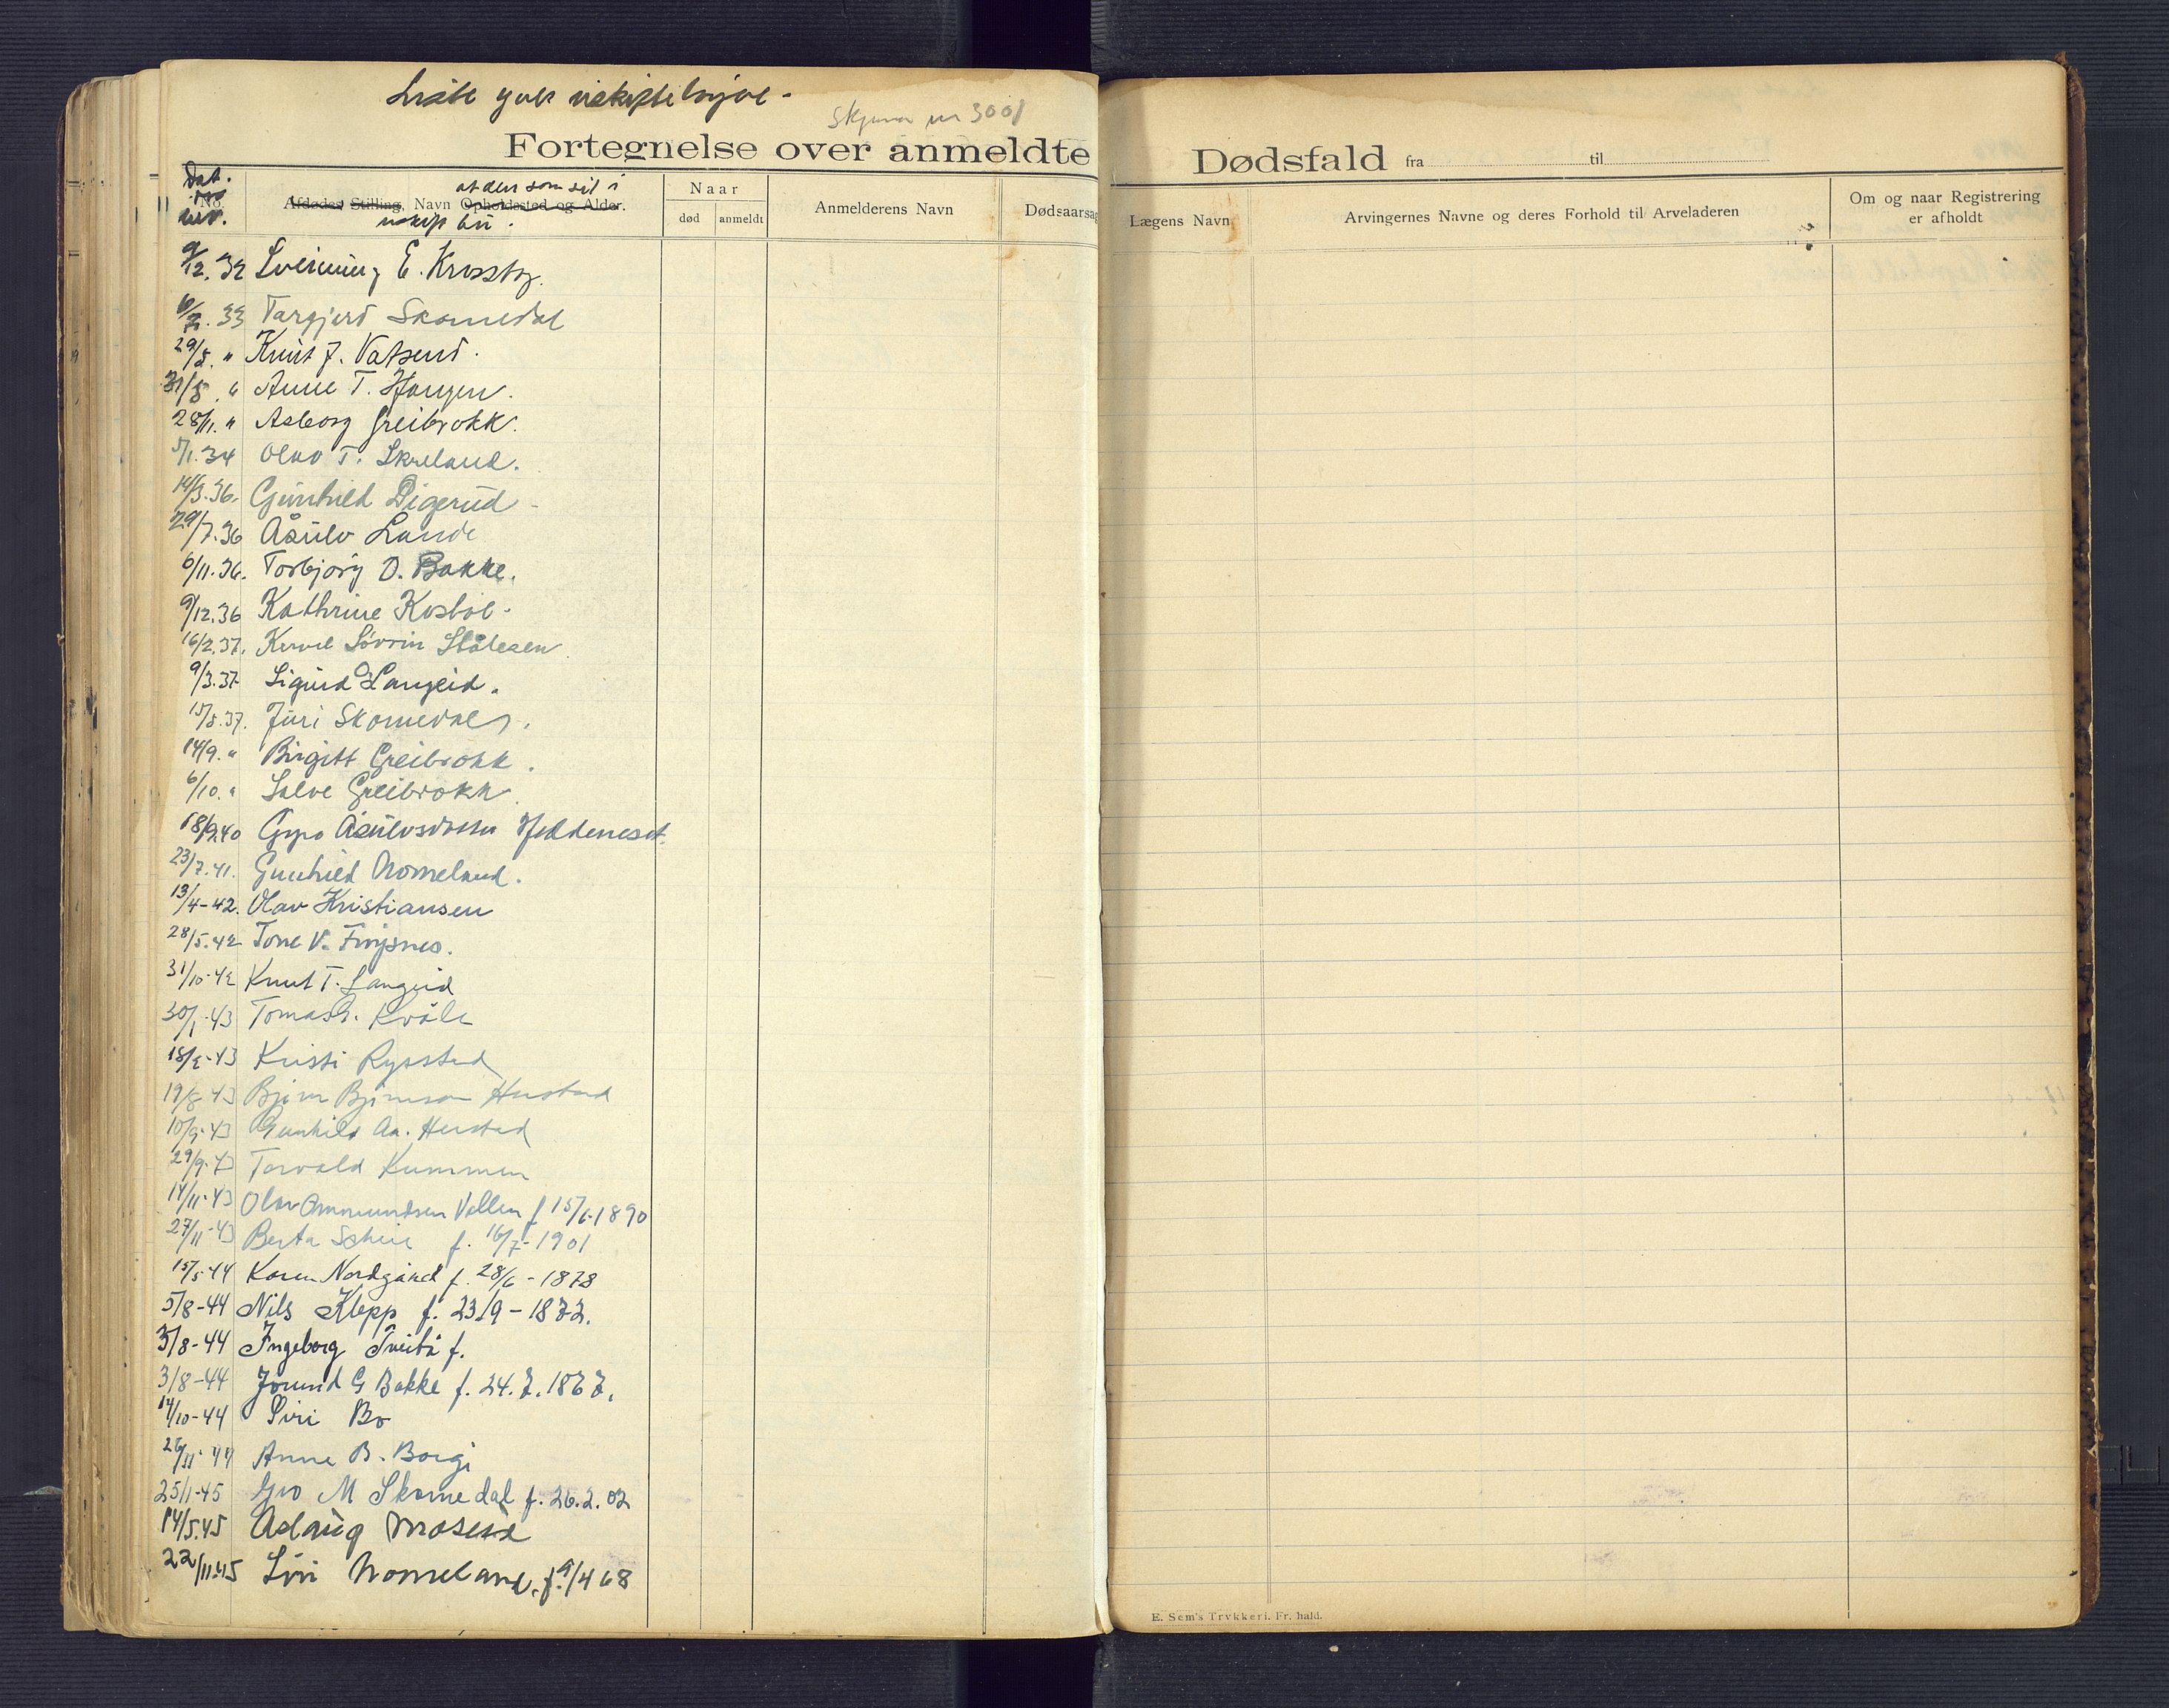 Liste yver uskiftebuger -
Skjema nr 3001
Fortegnelse over anmeldte Dødsfald fra til
Dat.
No.
Afdødes Stilling, Navn Opholdssted og Alder.
at den som sit i
uskift bu.
Naar
død anmeldt
Anmelderens Navn
Dødsaarsag
Lægens Navn
Arvingernes Navne og deres Forhold til Arveladeren
Om og naar Registrering
er afholdt
9/12. 32 Sveinung E. Krossby.
6/7. 33 Targjerd Skomedal
29/8. " Knut J. Vatsend.
31/8. " Anne T. Haugen.
28/11. " Asborg Greibrokk.
5/1. 34 Olav T. Skreland.
14/3. 36. Gunhild Digerud -
29/7. 36 Åsulv Lande
6/11. 36. Torbjørg O. Bakke.
9/12. 36 Kathrine Kosbøl -
16/2. 37. Sørrin Ståleson
9/3. 37 Sigurd Langeid.
15/5. 37. Juri Skomedal
14/9. " Birgitt Greibrokk.
6/10. " Salve Greibrokk.
18/9 40 Gyro Åsulvsdotter Heddeneset.
23/7. 41. Gunhild Nomeland.
13/4-42. Olav Kristiansen
28/5. 42 Tone V. Frøysnes.
31/10-42 Knut T. Langeid
30/1-43 Tomas G. Kvåle
18/2-43 Kristi Rysstad
19/8 43 Bjørn Bjørnson Herstad
10/9-43 Gunhild Aa. Herstad
29/9-43 Torvald Kummen
14/11-43 Olav Ommundsen Vallen f 15/6-1890
27/11-43 Berta f. 16/7-1901
15/5-44 Karen Nordgård f. 28/6-1878
5/8-44 Nils Klepp f. 23/9-1872.
5/8-44 Ingeborg Tveitå f.
3/8-44 Jorund G Bakke f. 24.7.1867.
14/10-44 Siri Bø
26/11-44 Anne B. Borgi
25/1-45 Gro M Skomedal f. 26.2.02
14/5.45 Aslaug Moseid
22/11.45 Siri Nomeland, f. 9/4 68
E. Sem's Trykkeri. Fr. hald.